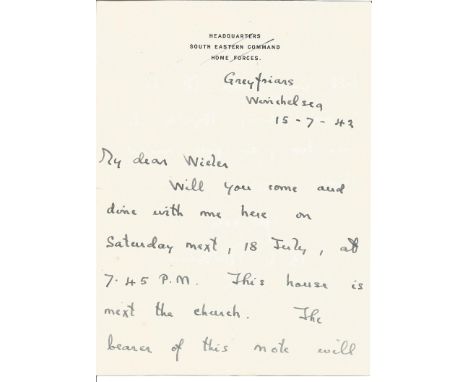 HEADQUARTERS
SOUTH EASTERN COMMAND
HOME FORCES.
Greyfriars
Winchelsea
15-7-42
My dear Wieler
Will you come and
dine with me here on
Saturday next, 18 July, at
7.45 P.M. This house is
next the church. The
bearer of this note will